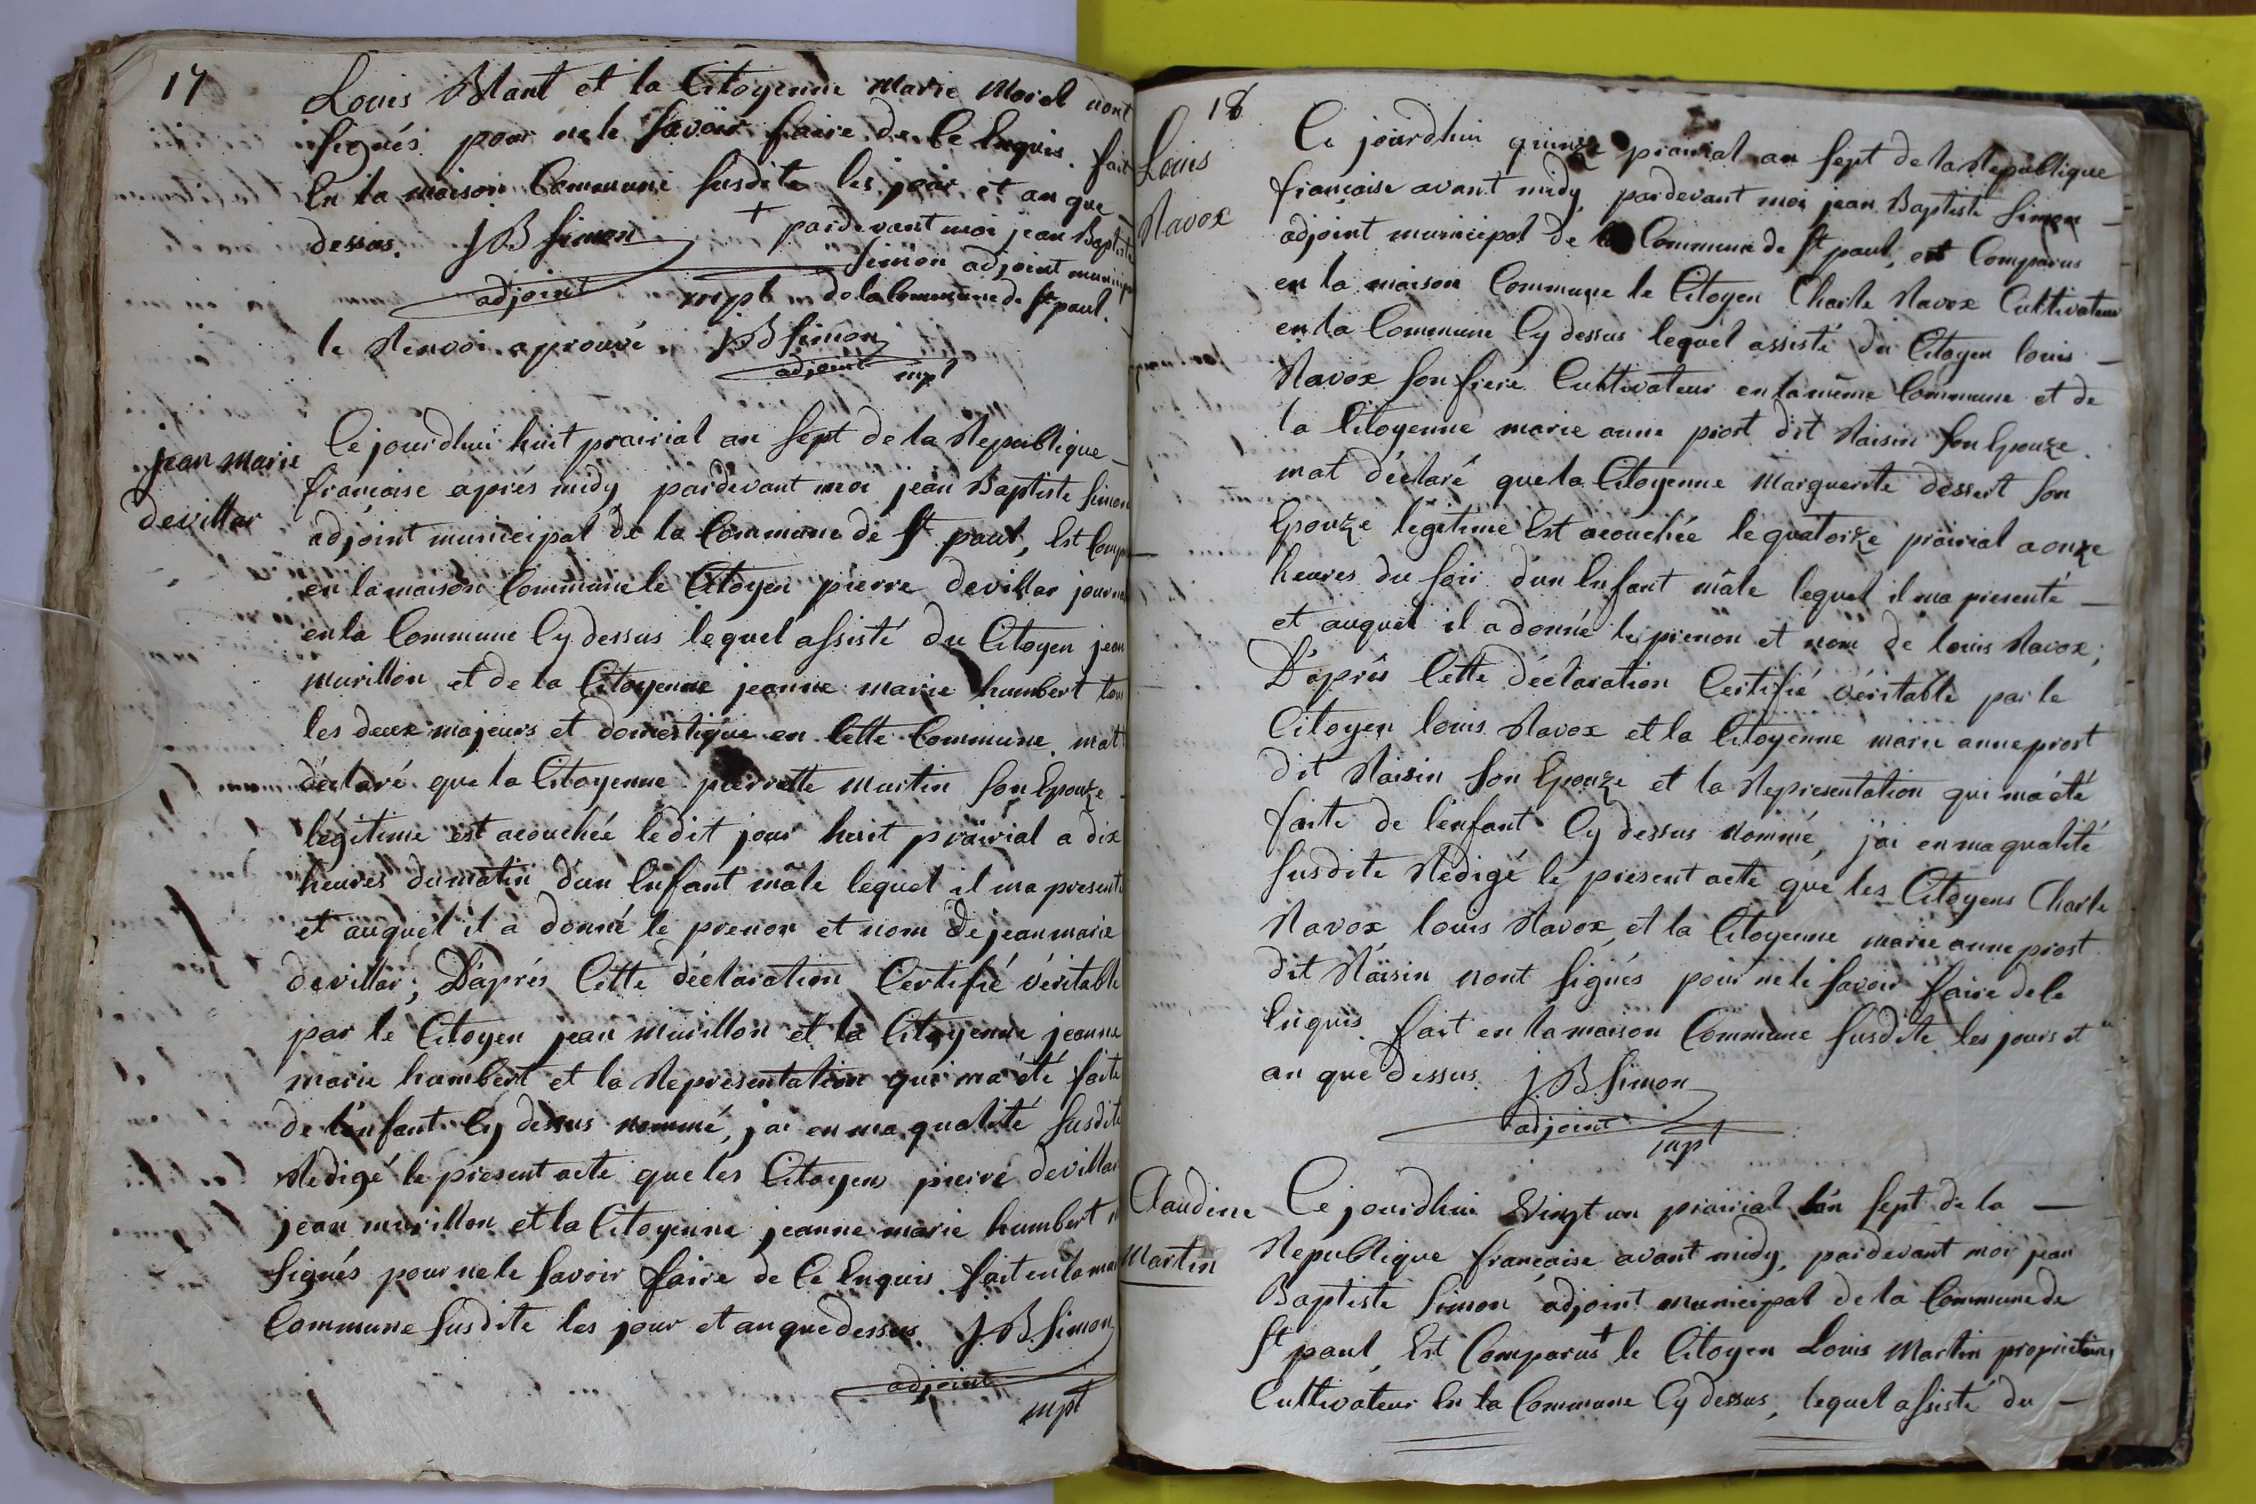 17
Louis Blant et la Citoyenne Marie Morel nont
signés pour ne le savoir faire de ce Enquis. fait
En la maison Commune susdite les jour et an que
dessus. JB Simon + pardevant moi jean Baptiste
Simon adjoint municip
adjoint mpl de la Commune de St paul.
le Renvoi aprouvé JB Simon
adjoint mpl
jean marie
devillar
Ce jourdhui huit prairial an sept de la Republique
française aprés midy pardevant moi jean Baptiste Simon
adjoint municipal de la Commune de St paul, Est Comp
en la maison Commune le Citoyen pierre devillar journ
en la Commune Cy dessus lequel assisté du Citoyen jean
murillon et de la Citoyenne jeanne marie humbert tou
les deux majeurs et domestique en cette Commune mat
déclaré que la Citoyenne pierrette martin son Epouze
légitime est acouchée ledit jour huit prairial a dix
heures du matin d'un Enfant mâle lequel il ma presenté
et auquel il a donné le prenon et nom de jean marie
devillar; D'aprés Cette déclaration Certifié véritable
par le Citoyen jean murillon et la Citoyenne jeanne
marie humbert et la Representation qui m'a été faite
de l'enfant Cy dessus nommé, j'ai en ma qualité susdite
Redigé le present acte que les Citoyens pierre devillar
jean murillon et la Citoyenne jeanne marie humbert n
signés pour ne le savoir faire de ce Enquis fait en la mai
Commune susdite les jour et an que dessus. J.B. Simon
adjoint
mpl
18
Louis
Ravox
Ce jourdhui quinze prairial an sept de la Republique
française avant midy, pardevant moi jean Baptiste Simon
adjoint municipal de la Commune de St paul, est Comparus
en la maison Commune le Citoyen Charle Ravox Cultivateur
en la Commune Cy dessus lequel assisté du Citoyen louis
Ravox son frere Cultivateur en la même Commune et de
la Citoyenne marie anne prost dit Raisin son Epouze
mat déclaré que la Citoyenne Marguerite dessert son
Epouze legitime Est acouchée le quatorze prairial a onze
heures du soir d'un Enfant mâle lequel il ma presenté
et auquel il a donné le prenon et nom de louis Ravox;
D'aprés Cette déclaration Certifié véritable par le
Citoyen louis Ravox et la Citoyenne marie anne prost
dit Raisin son Epouze et la Representation qui m'a été
faite de l'enfant Cy dessus Nommé, j'ai en ma qualité
susdite Redigé le present acte que les Citoyens Charle
Ravox, louis Ravox, et la Citoyenne marie anne prost
dit Raisin nont signés pour ne le savoir faire de ce
Enquis. fait en la maison Commune susdite les jours et
an que dessus. J.B. Simon
adjoint
mpl
Claudine
Martin
Ce jourdhui Vingt un prairial l'an sept de la
Republique française avant midy, pardevant moi jean
Baptiste Simon adjoint municipal de la Commune de
St paul, Est Comparus + le Citoyen Louis Martin proprietaire
Cultivateur En la Commune Cy dessus, lequel assisté du